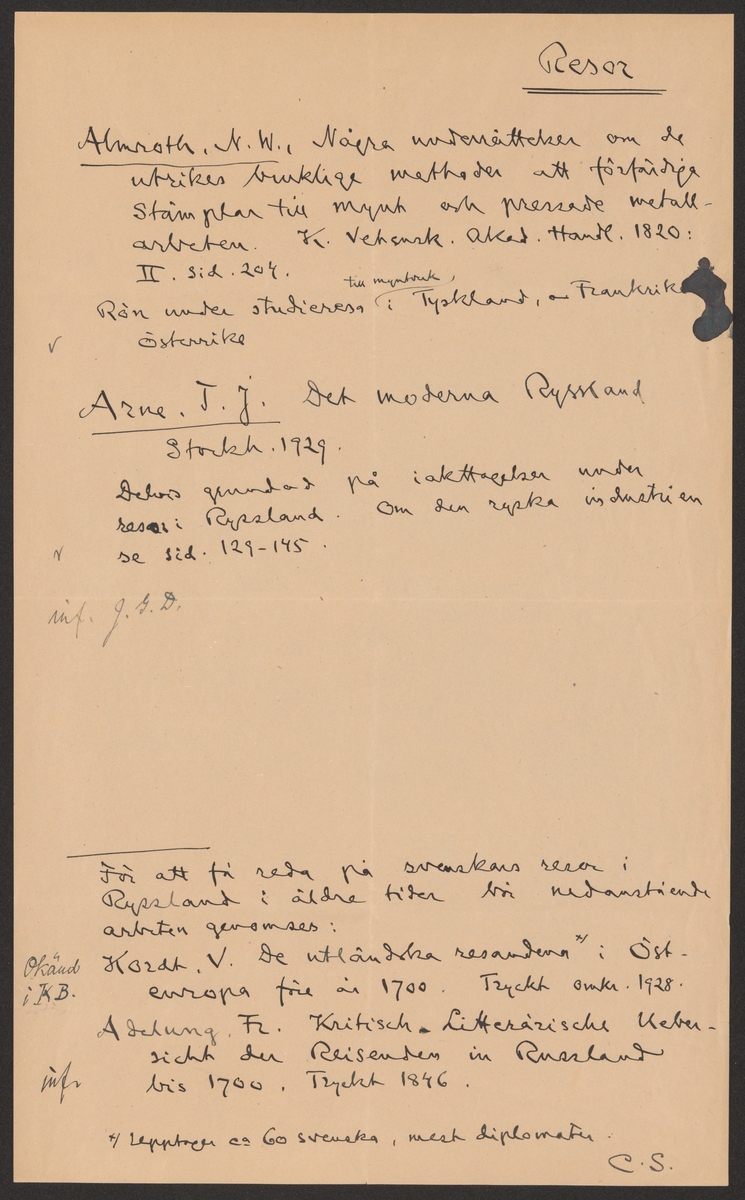 Resor
Almroth, N. W., Några underrättelser om de
utrikes brukliga methoder att förfärdiga
Stämplar till mynt och pressade metall-
arbeten. K. Vetensk. Akad. Handl. 1820:
II. sid. 204.
till myntverk,
Rön under studieresa i Tyskland, Frankrike
v Österrike
Arne, T. J. Det moderna Ryssland
Stockh. 1929.
Delvis grundad på iakttagelser under
resor i Ryssland. Om den ryska industrien
v se sid. 129-145.
inf. J. G. D.
För att få reda på svenskars resor i
Ryssland i äldre tider bör nedanstående
arbeten genomses:
Okänd Kordt, V. De utländska resandena */ i Öst-
i KB. europa före år 1700. Tryckt omkr. 1928.
Adelung, Fr. Kritisch-Litterärische Ueber-
sicht der Reisenden in Russland
inf. bis 1700. Tryckt 1846.
*/ Upptager ca 60 svenska, mest diplomater.
C. S.